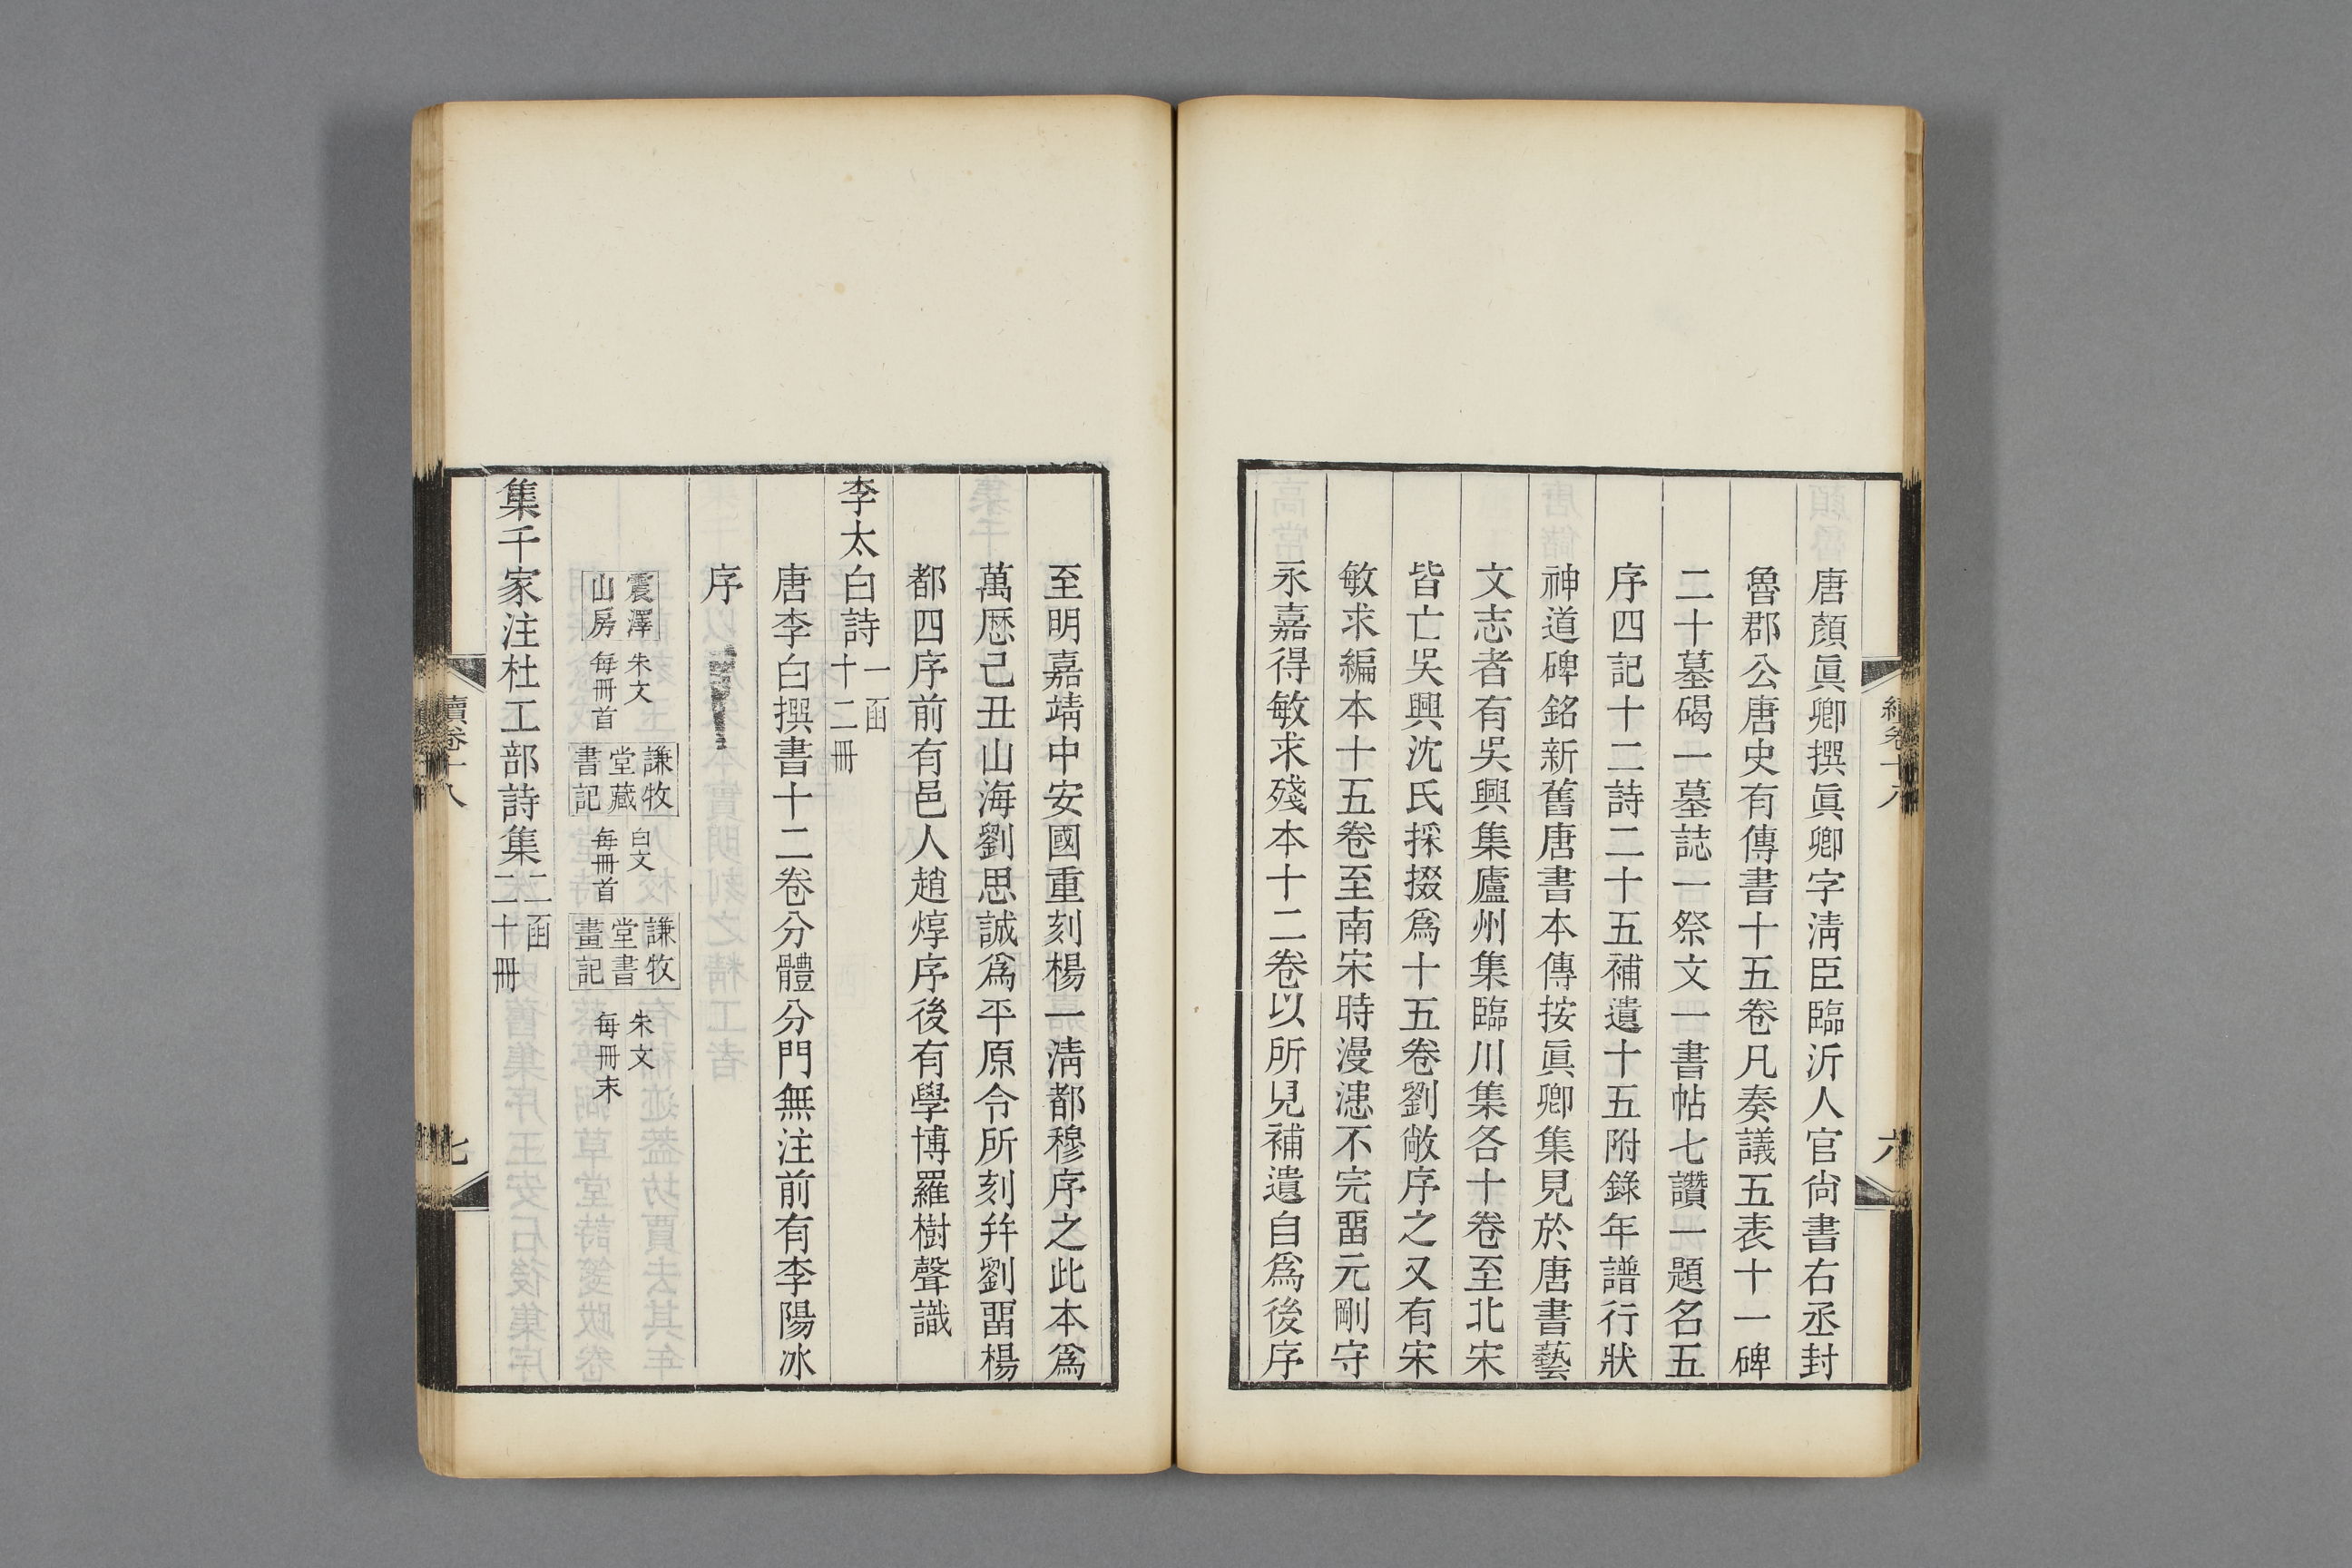 唐顏眞卿撰眞卿字淸臣臨沂人官尙書右丞封
魯郡公唐史有傳書十五卷凡奏議五表十一碑
二十墓碣一墓誌一祭文一書帖七讚一題名五
序四記十二詩二十五補遺十五附錄年譜行狀
神道碑銘新舊唐書本傳按眞卿集見於唐書藝
文志者有吳興集廬州集臨川集各十卷至北宋
皆亡吳興沈氏採掇爲十五卷劉敞序之又有宋
敏求編本十五卷至南宋時漫漶不完畱元剛守
永嘉得敏求殘本十二卷以所見補遺自爲後序
至明嘉靖中安國重刻楊一淸都穆序之此本爲
萬厯己丑山海劉思誠爲平原令所刻幷劉畱楊
都四序前有邑人趙焞序後有學博羅樹聲識
李太白詩一函十二冊
唐李白撰書十二卷分體分門無注前有李陽冰
序
震澤山房 朱文每冊首 謙牧堂藏書記 白文每冊首 謙牧堂書畫記 朱文每冊末
集千家注杜工部詩集二函二十冊
續卷十八
七